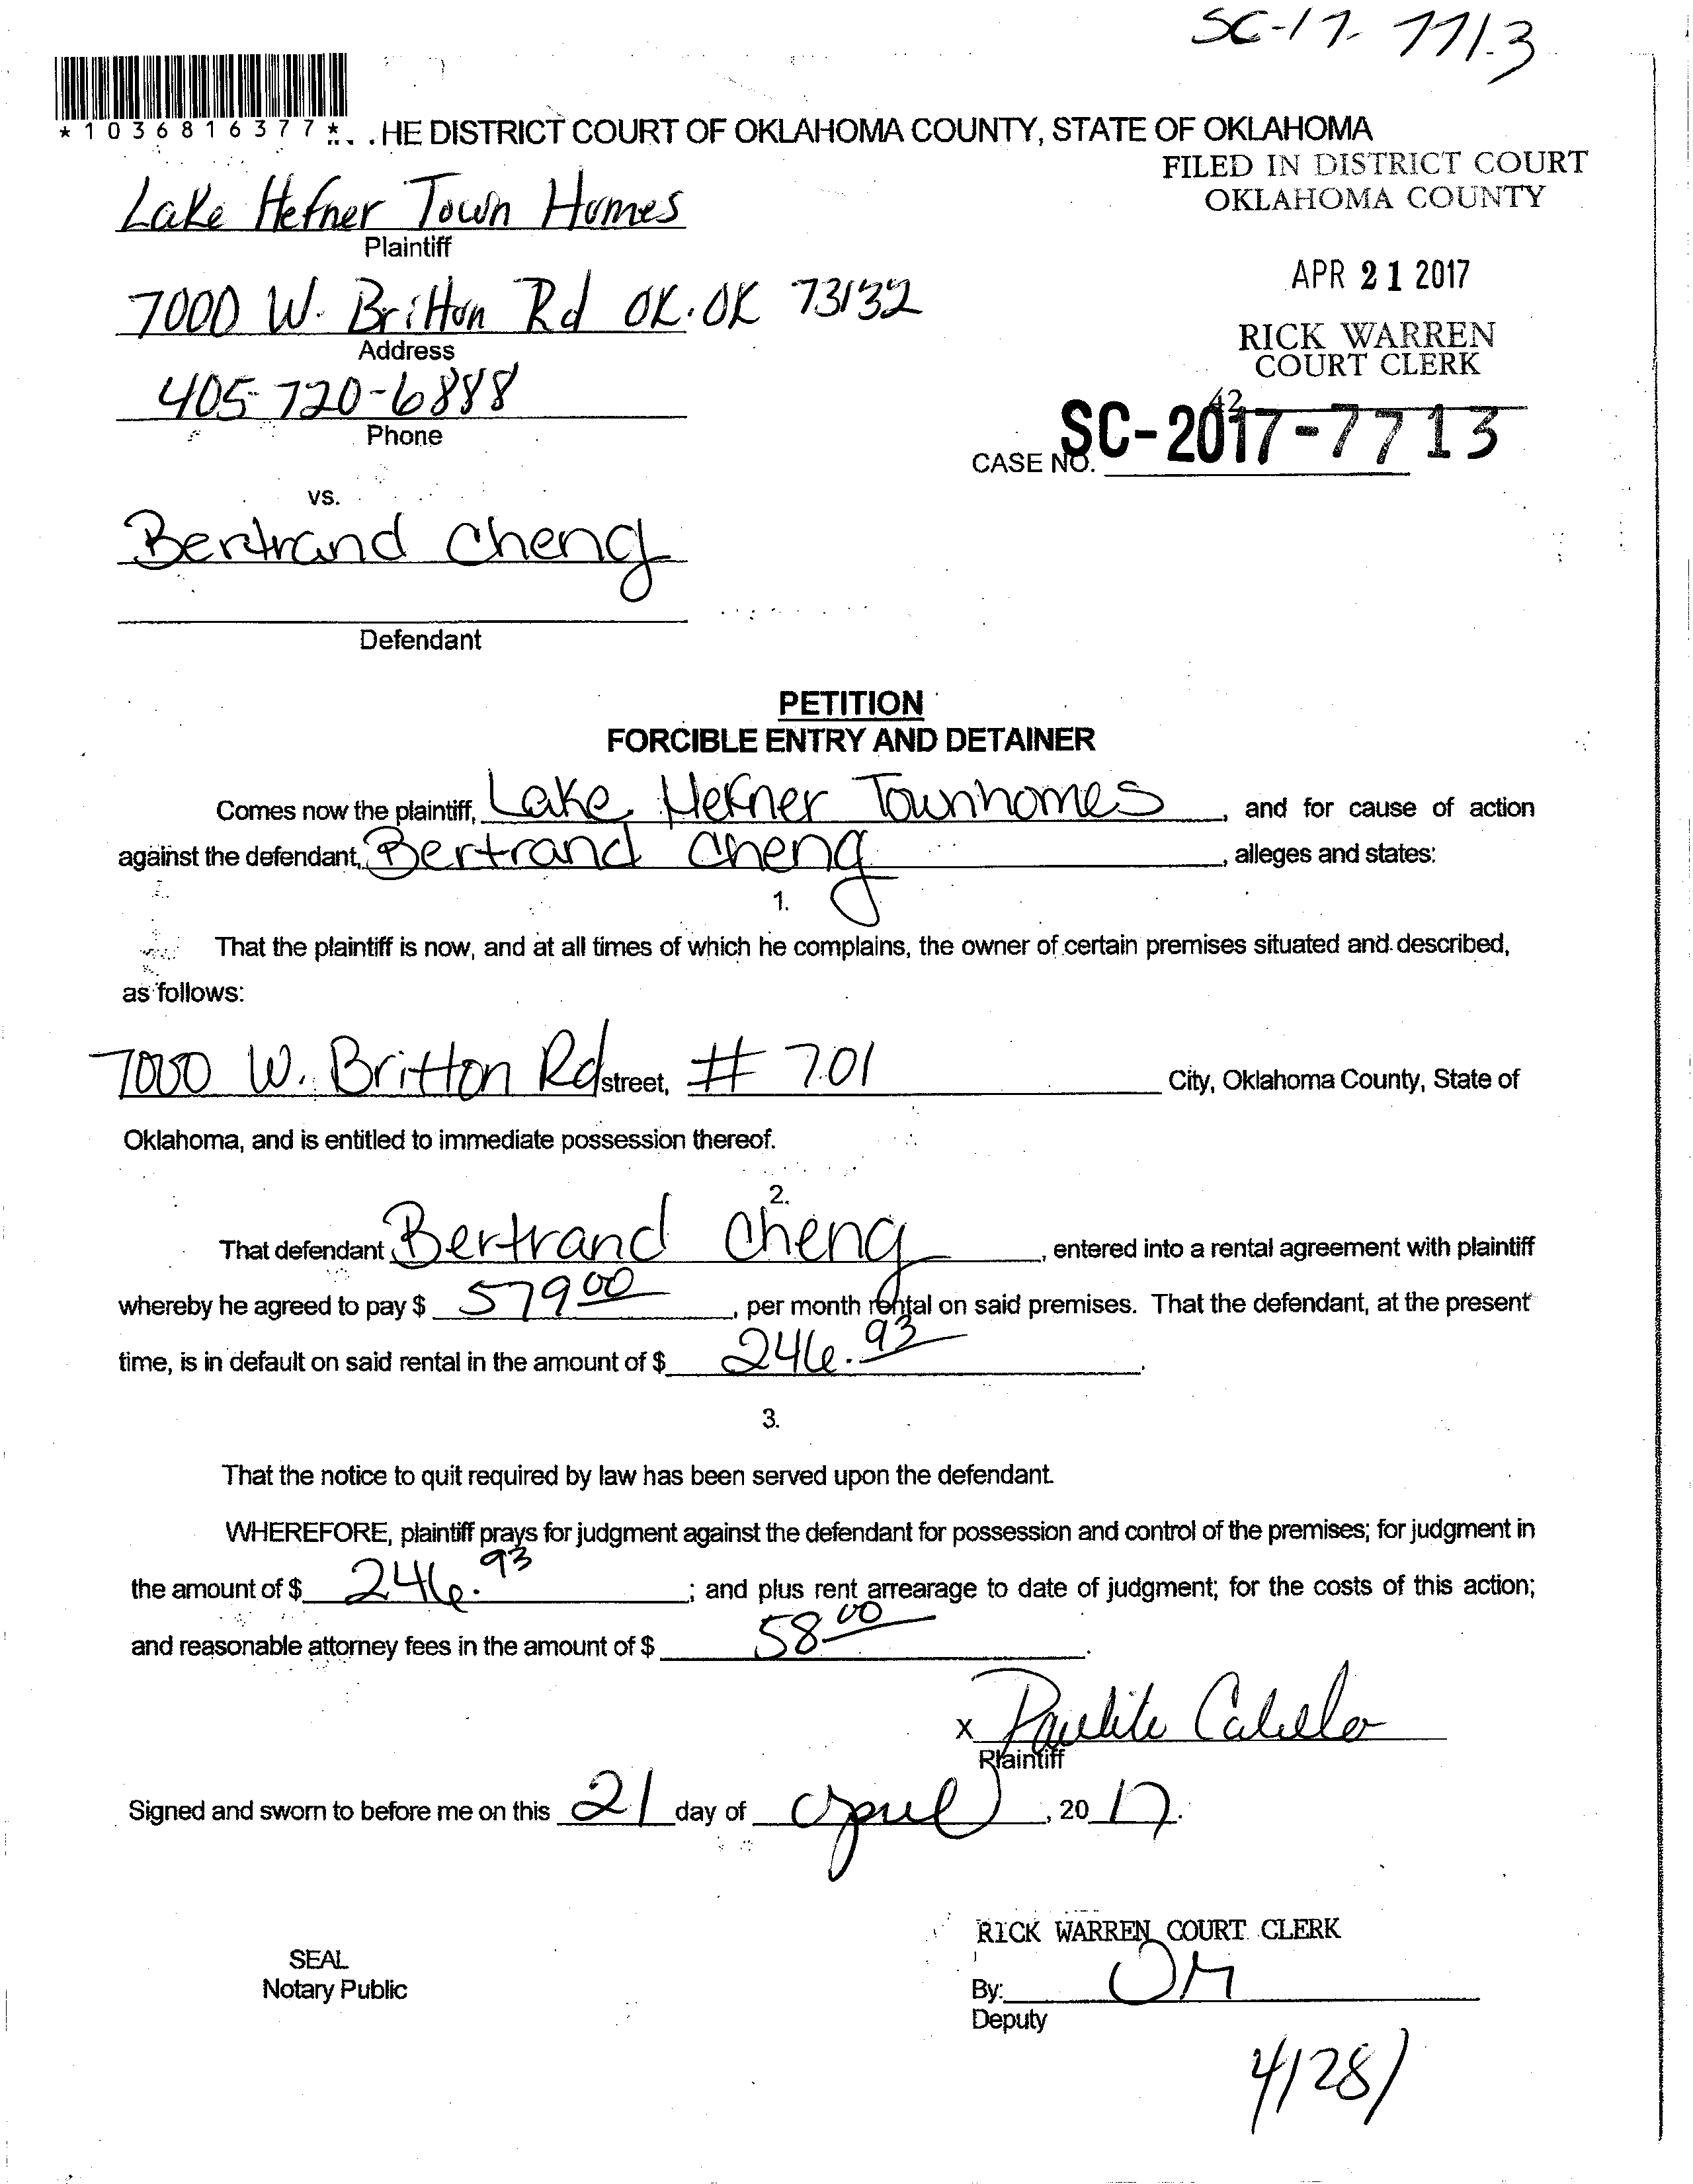 SC-17-7713
*1036816377*
HE DISTRICT COURT OF OKLAHOMA COUNTY, STATE OF OKLAHOMA
FILED IN DISTRICT COURT
OKLAHOMA COUNTY
Lake Hefner Town Homes
Plaintiff
APR 21 2017
7000 W. Britton Rd OK.OK 73132
Address
RICK WARREN
COURT CLERK
405-720-6888
Phone
42
CASE NO. SC-2017-7713
vs.
Bertrand Cheng
Defendant
PETITION
FORCIBLE ENTRY AND DETAINER
Comes now the plaintiff, Lake Hefner Townhomes, and for cause of action
against the defendant, Bertrand Cheng, alleges and states:
1.
That the plaintiff is now, and at all times of which he complains, the owner of certain premises situated and described,
as follows:
7000 W. Britton Rd street, # 701 City, Oklahoma County, State of
Oklahoma, and is entitled to immediate possession thereof.
2.
That defendant Bertrand Cheng, entered into a rental agreement with plaintiff
whereby he agreed to pay $ 579 00, per month rental on said premises. That the defendant, at the present
time, is in default on said rental in the amount of $ 246.93.
3.
That the notice to quit required by law has been served upon the defendant.
WHEREFORE, plaintiff prays for judgment against the defendant for possession and control of the premises; for judgment in
the amount of $ 246.93; and plus rent arrearage to date of judgment; for the costs of this action;
and reasonable attorney fees in the amount of $ 58 00.
x
Plaintiff
Signed and sworn to before me on this 21 day of April, 20 17.
RICK WARREN COURT CLERK
SEAL
Notary Public
By:
Deputy